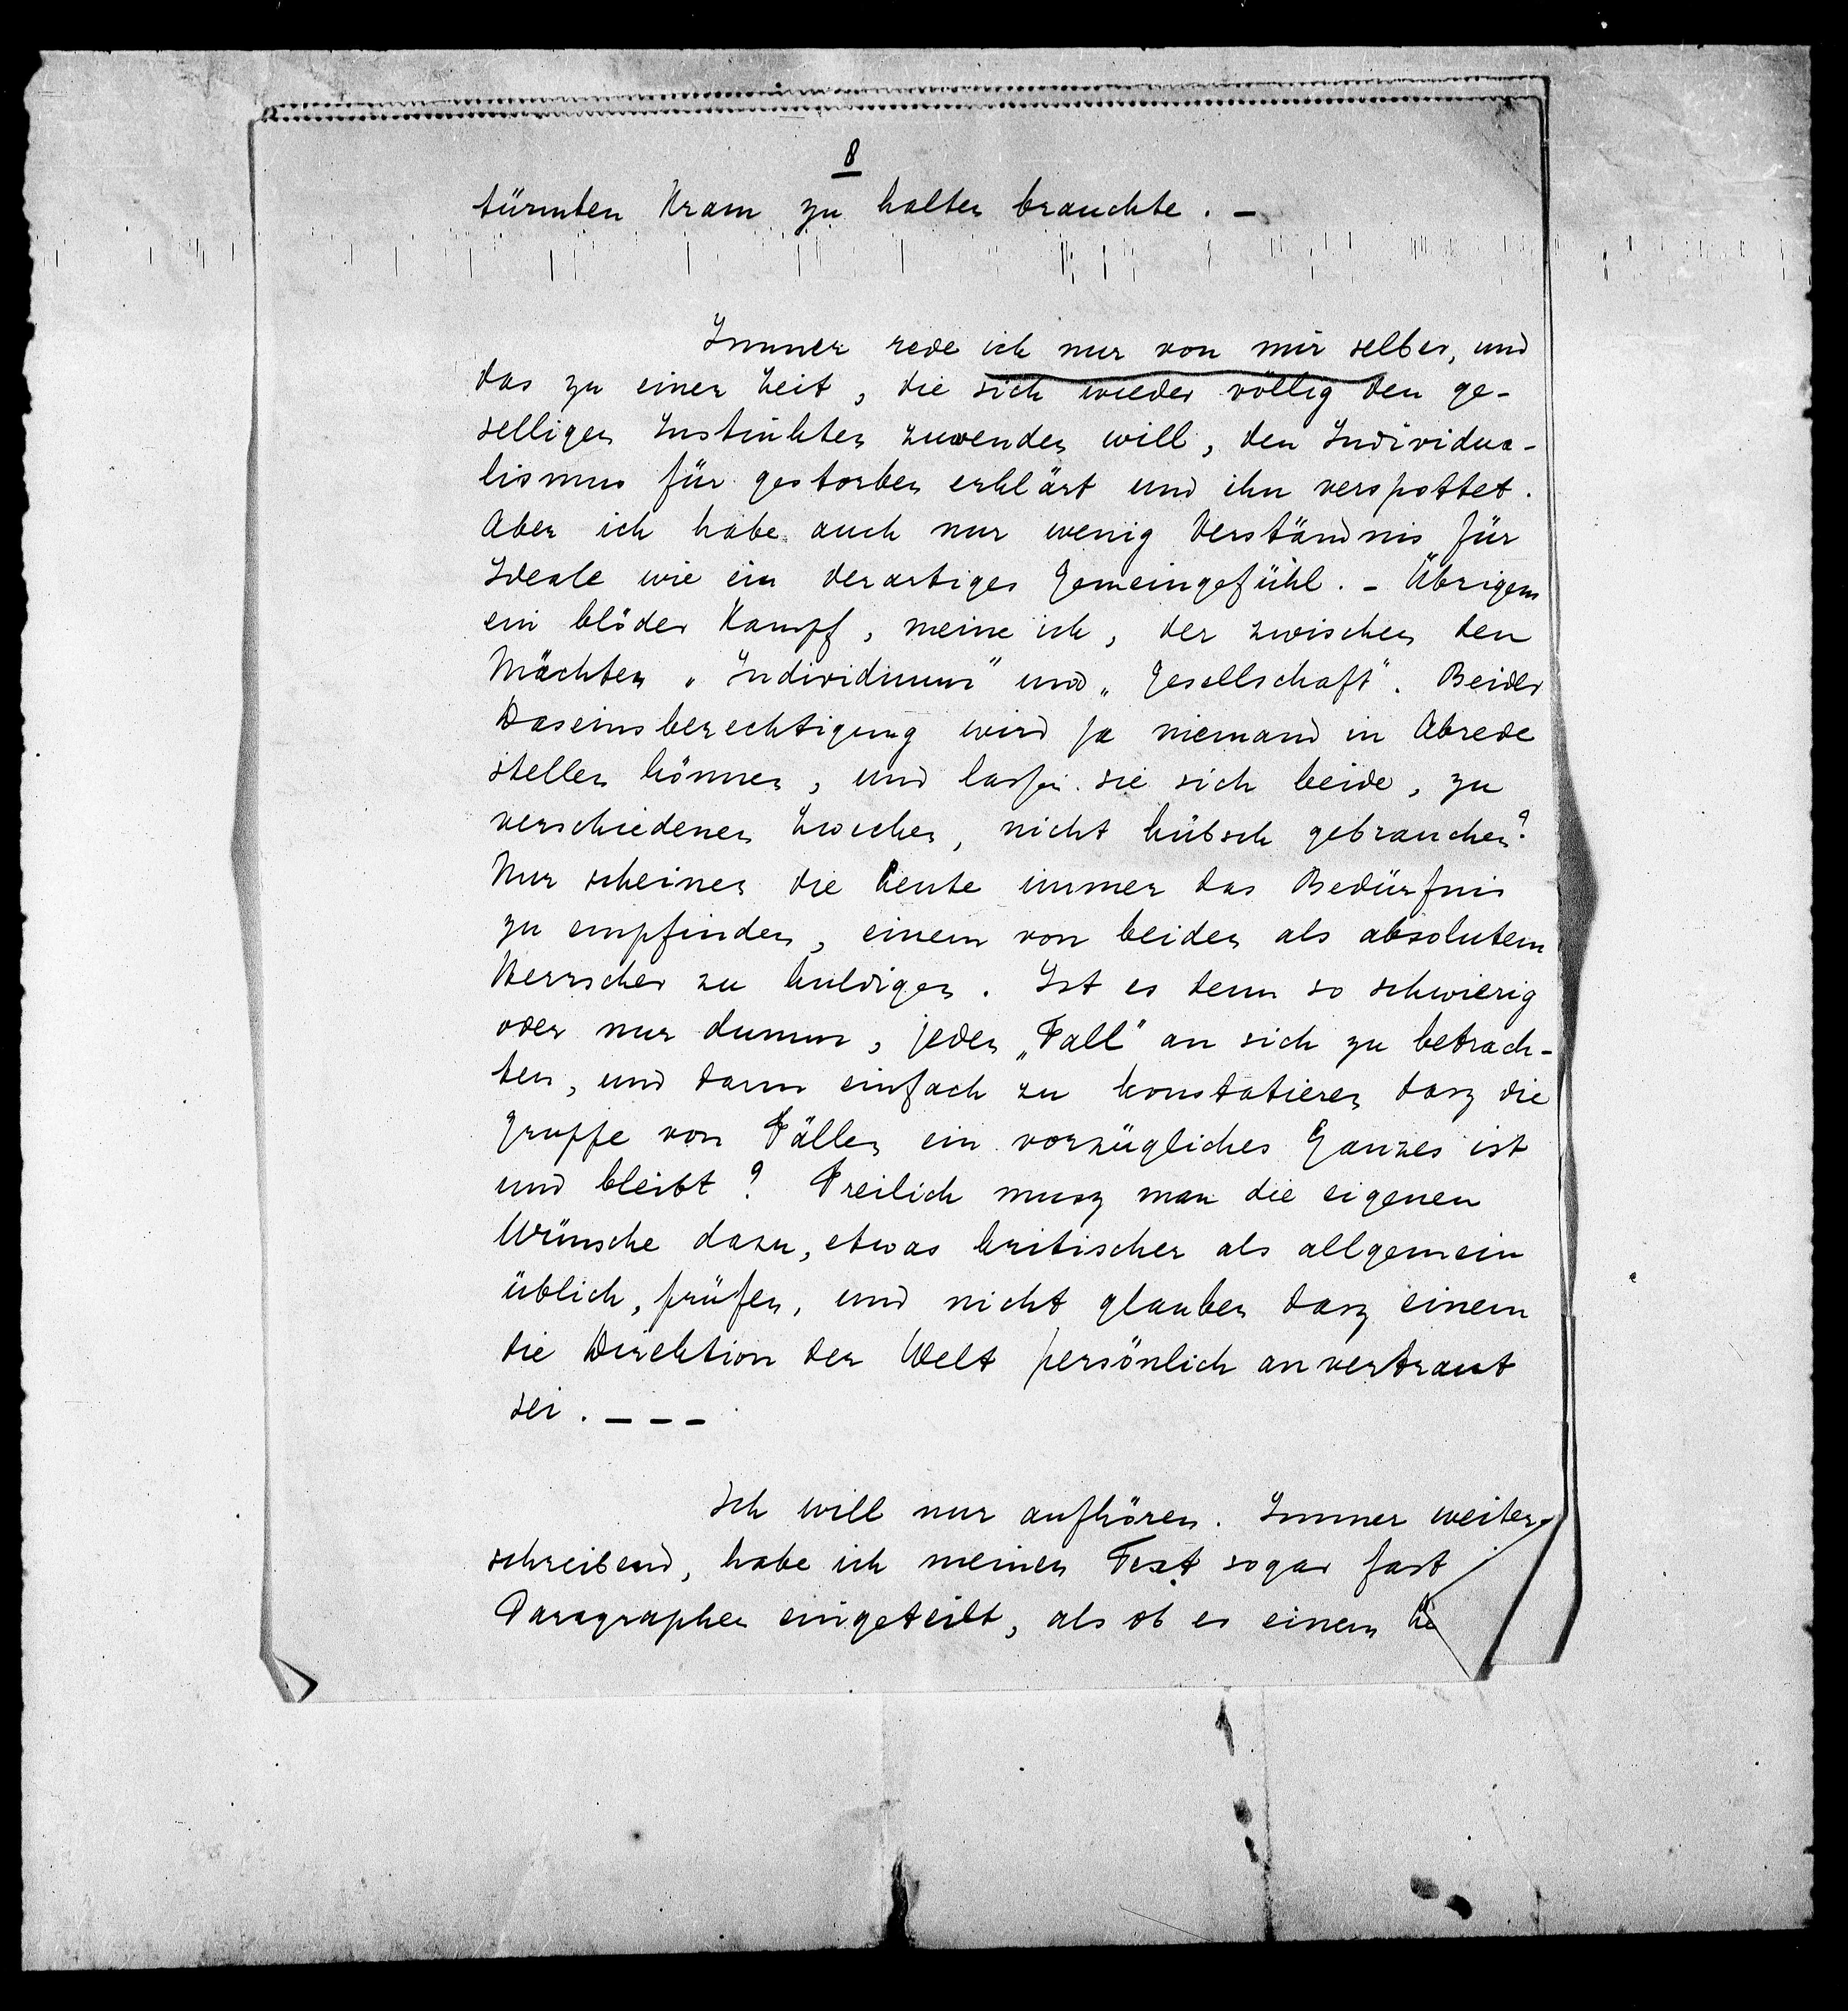 8
türmten Kram zu halten brauchte. –
Immer rede ich nur von mir selber, und
das zu einer Zeit, die sich wieder völlig den ge-
selligen Instinkten zuwenden will, den Individua-
lismus für gestorben erklärt und ihn verspottet.
Aber ich habe auch nur wenig Verständnis für
Ideale wie ein derartiges Gemeingefühl. – Übrigens
ein blöder Kampf, meine ich, der zwischen den
Mächten „Individuum" und „Gesellschaft". Beider
Daseinsberechtigung wird ja niemand in Abrede
stellen können, und lassen sie sich beide, zu
verschiedenen Zwecken, nicht hübsch gebrauchen?
Nur scheinen die Leute immer das Bedürfnis
zu empfinden, einem von beiden als absolutem
Herrscher zu huldigen. Ist es denn so schwierig
oder nur dumm, jeden „Fall" an sich zu betrach-
ten, und dann einfach zu konstatieren dasz die
Gruppe von Fällen ein vorzügliches Ganzes ist
und bleibt? Freilich musz man die eigenen
Wünsche dazu, etwas kritischer als allgemein
üblich, prüfen, und nicht glauben dasz einem
die Direktion der Welt persönlich anvertraut
sei. – – –
Ich will nur aufhören. Immer weiter
schreibend, habe ich meinen Text sogar fast
Paragraphen eingeteilt, als ob es einem